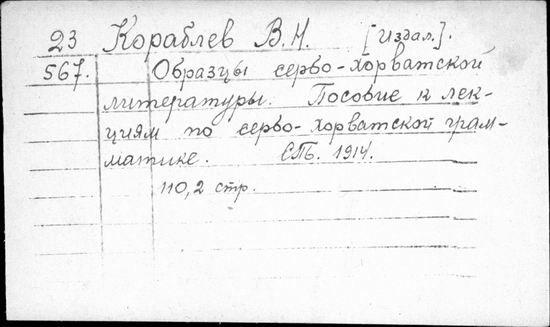 23 Кораблев В.Н. [Издал.].
567. Образцы сербо-хорватской
литературы. Пособие к лек-
циям по сербо-хорватской грам-
матике. СПБ. 1914.
110,2 стр.